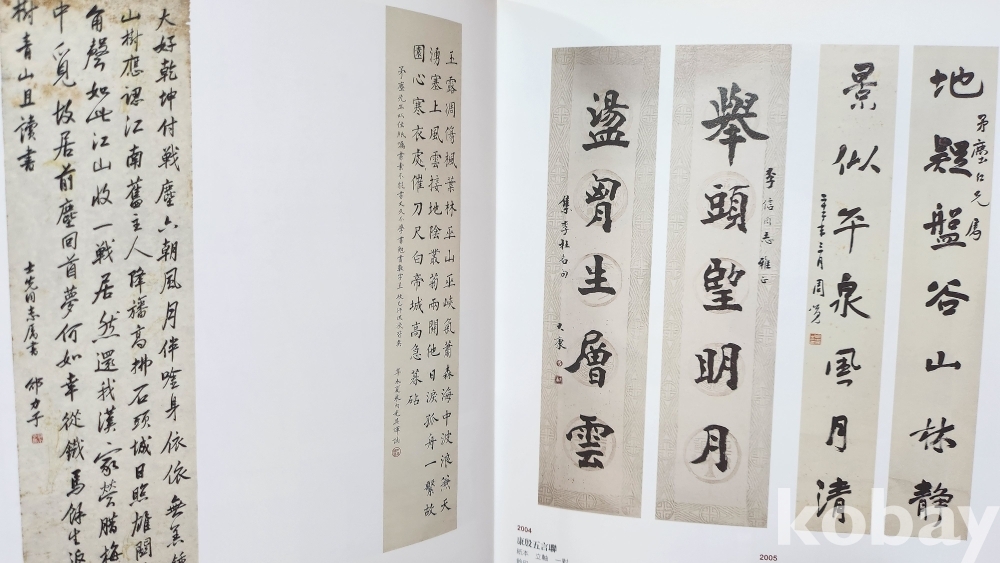 大好乾坤付戰塵六朝風月伴吟身依依無恙鍾
山樹應認江南舊主人降旛高拂石頭城日照雄關
角聲如此江山收一戰居然還我漢家營腊梅
中覓故居前塵回首夢何如幸從鐵馬餘生返
樹青山且讀書
士先同志属書 邵力子
玉露凋傷楓葉林巫山巫峽氣蕭森海中波浪兼天
湧塞上風雲接地陰叢菊兩開他日淚孤舟一繫故
園心寒衣處催刀尺白帝城高急暮砧
舉頭望明月
季信同志雅正
盪胷生層雲
集李杜名句
地疑盤谷山林静
矛塵仁兄属
景似平泉風月清
二十二年三月周覺
2004
康殷五言聯
紙本 立軸 一對
2005
kobay